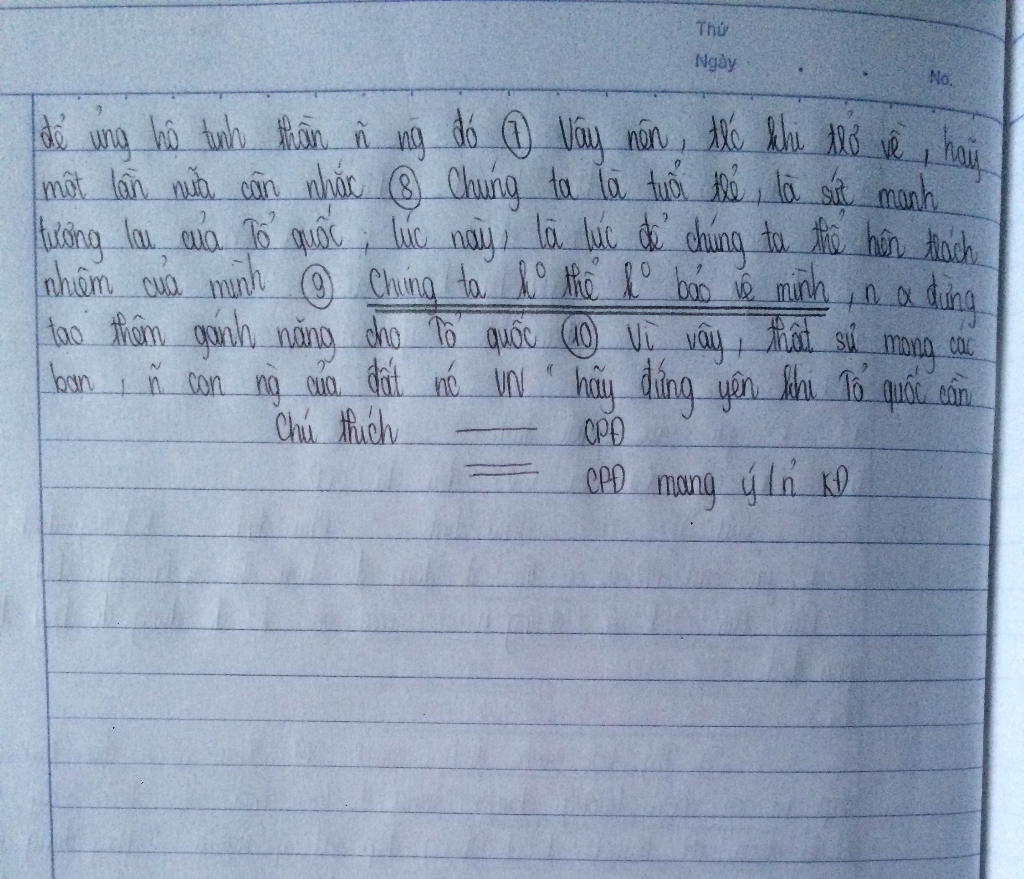 Thứ
Ngày . . No.
để ủng hộ tinh thần ñ ng đó ⑦ Vậy nên, trc khi trở về, hãy
một lần nữa cân nhắc ⑧ Chúng ta là tuổi trẻ, là sức mạnh
tương lai của Tổ quốc, lúc này, là lúc để chúng ta thể hiện trách
nhiệm của mình ⑨ Chúng ta k° thể k° bảo vệ mình, n α đừng
tạo thêm gánh nặng cho Tổ quốc ⑩ Vì vậy, thật sự mong các
bạn, ñ con ng của đất nc VN " hãy đứng yên khi Tổ quốc cần
Chú thích — CPĐ
CPĐ mang ý/n KĐ